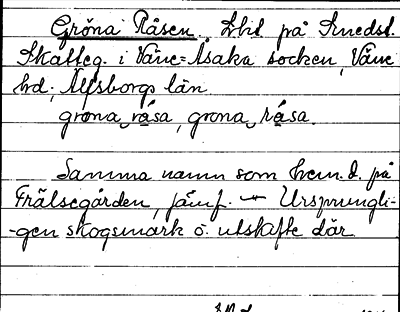 Gröna Råsen. Lht på Smedst.
Skatteg. i Väne-Åsaka socken, Väne
hd; Älfsborgs län.
grøna råsa, grøna råsa.
Samma namn som hem. d. på
Frälsegården, jämf. – Ursprungli-
-gen skogsmark o. utskifte där